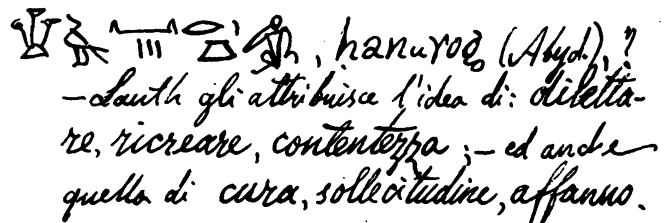 , hanurog (Abyd.), ?
– Lauth gli attribuisce l'idea di: diletta-
re, ricreare, contentezza ; – ed anche
quella di cura, sollecitudine, affanno.